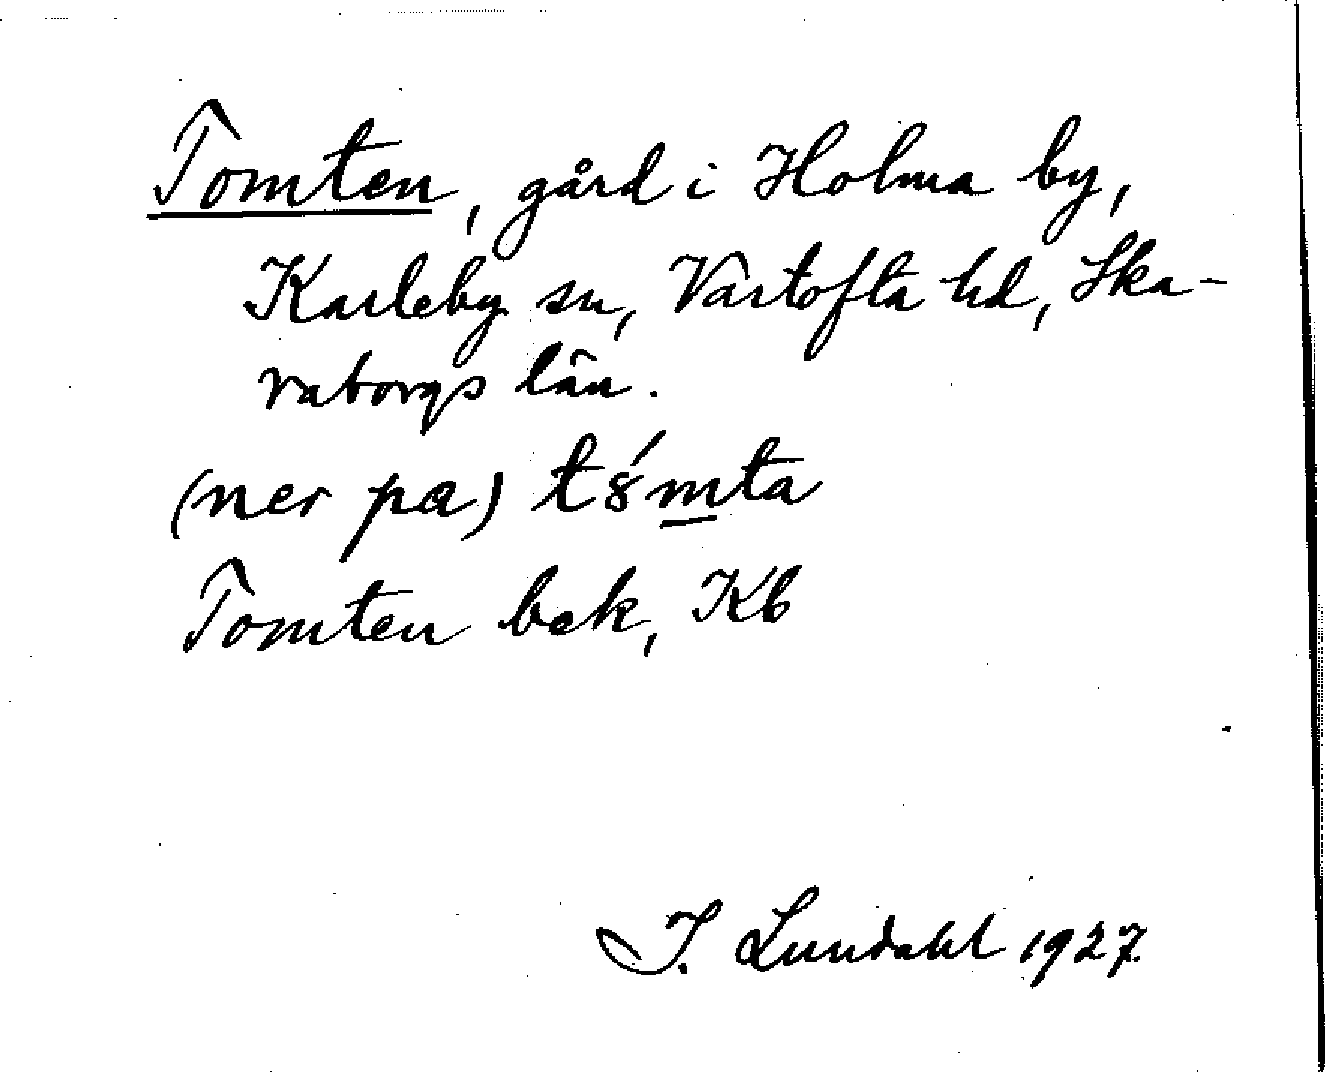 Tomten, gård i Holma by,
Karleby sn, Vartofta hd, Ska-
raborgs län.
(ner pa) t8́mta
Tomten bek, Kb
I. Lundahl 1927.